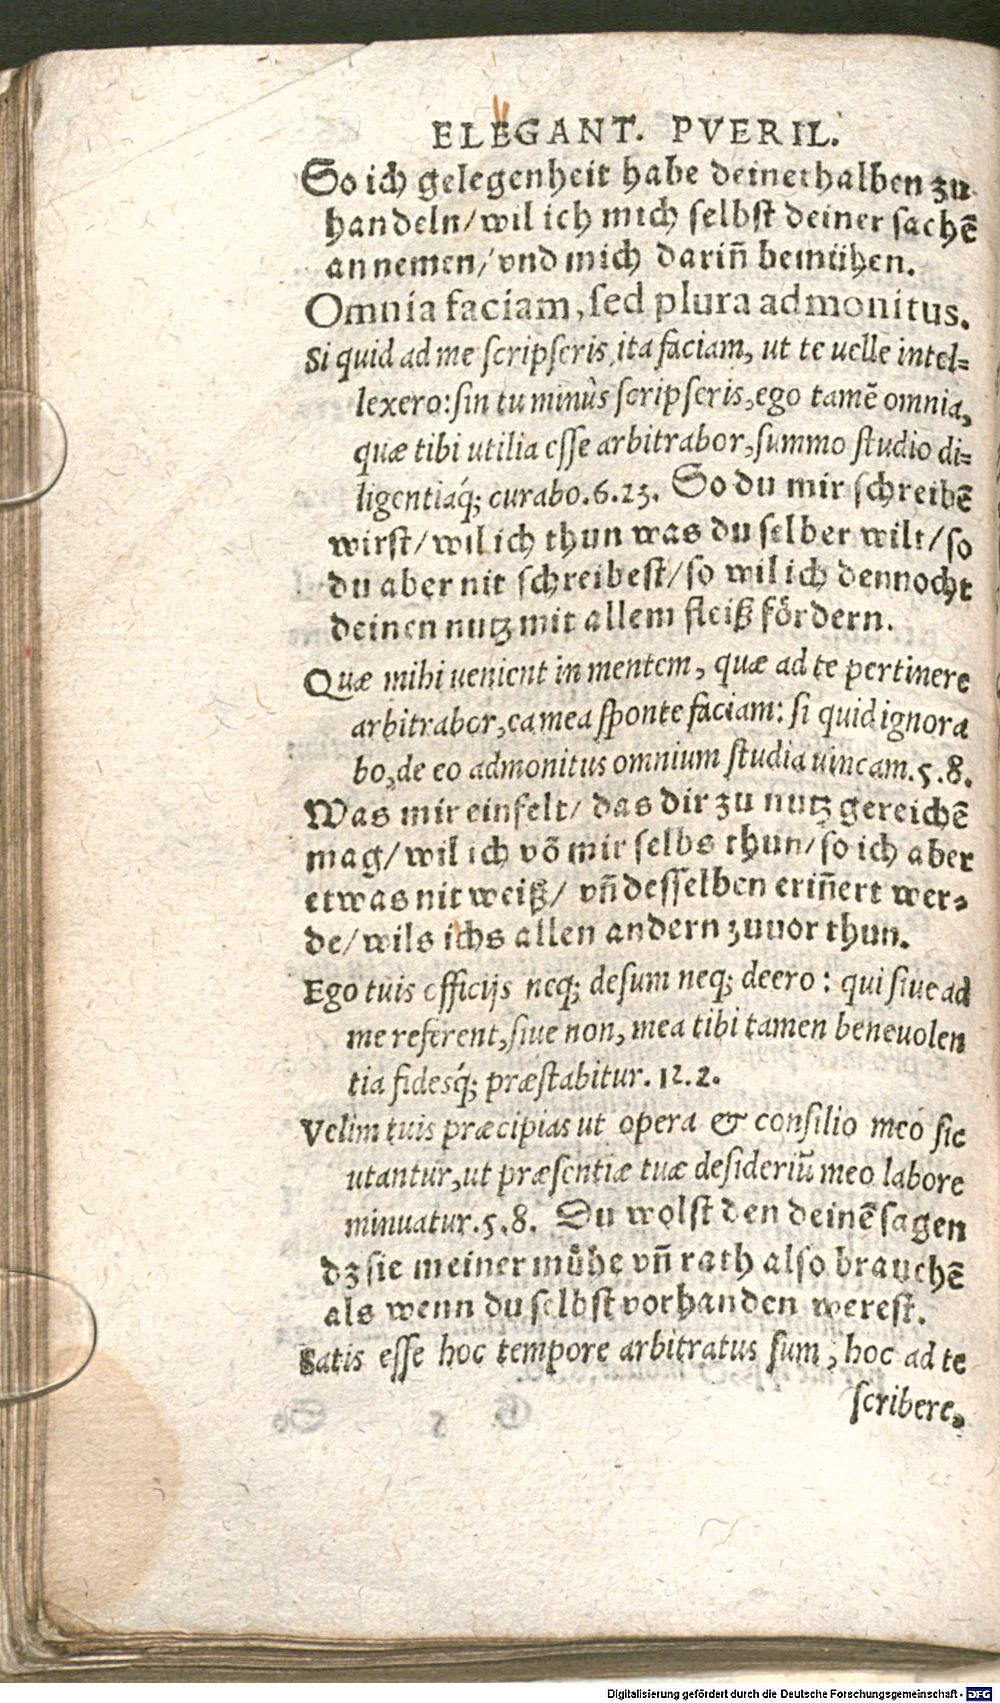 ELEGANT. PVERIL.
So ich gelegenheit habe deinethalben zu
handeln/wil ich mich selbst deiner sachē
annemen/vnd mich dariñ bemühen.
Omnia faciam, sed plura admonitus.
Si quid ad me scripseris ita faciam, ut te uelle intel-
lexero: sin tu minùs scripseris, ego tamē omnia,
quæ tibi utilia esse arbitrabor, summo studio di-
ligentiáq; curabo.6.23. So du mir schreibē
wirst/wil ich thun was du selber wilt/so
du aber nit schreibest/so wil ich dennocht
deinen nutz mit allem fleiß fördern.
Quæ mihi uenient in mentem, quæ ad te pertinere
arbitrabor, ea mea sponte faciam: si quid ignora
bo, de eo admonitus omnium studia uincam.5.8.
Was mir einfelt/ das dir zu nutz gereichē
mag/wil ich võ mir selbs thun/so ich aber
etwas nit weiß/ vñ desselben eriñert wer-
de/wils ichs allen andern zuuor thun.
Ego tuis officijs neq; desum neq; deero: qui siue ad
me referent, siue non, mea tibi tamen beneuolen
tia fidesq́; præstabitur.12.2.
Velim tuis præcipias ut opera & consilio meo sic
utantur, ut præsentiæ tuæ desideriū meo labore
minuatur.5.8. Du wolst den deinē sagen
dz sie meiner mühe vñ rath also brauchē
als wenn du selbst vorhanden werest.
Satis esse hoc tempore arbitratus sum, hoc ad te
scribere,
Digitalisierung gefördert durch die Deutsche Forschungsgemeinschaft - DFG